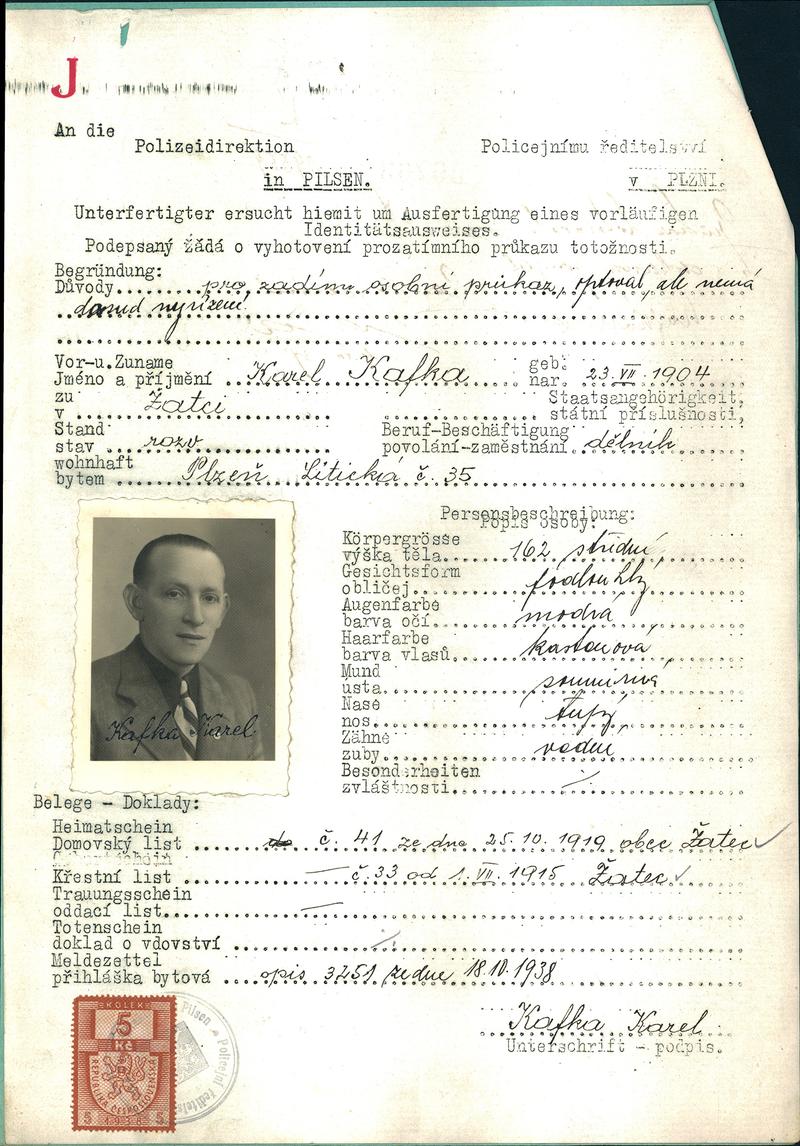 J
An die
Polizeidirektion Policejnímu ředitelsví
in PILSEN. v PLZNI.
Unterfertigter ersucht hiemit um Ausfertigung eines vorläufigen
Identitätsausweises.
Podepsaný žádá o vyhotovení prozatímního průkazu totožnosti.
Begründung:
Důvody pro osobní průkaz, optoval, ale nemá
dosud vyřízení.
Vor-u.Zuname geb.
Jméno a příjmění Karel Kafka nar. 23. VII. 1904
zu Staatsangehörigkeit,
v Žatci státní příslušnosti,
Stand Beruf-Beschäftigung
stav rozv povolání-zaměstnání dělník
wohnhaft
bytem Plzeň Litická č. 35
Personsbeschreibung:
Popis osoby:
Körpergrösse
výška těla 162 střední
Gesichtsform
obličej podlouhlý
Augenfarbe
barva očí modrá
Haarfarbe
barva vlasů kaštanová
Mund
ústa souměrná
Nase
nos tupý
Zähne
zuby vadné
Besonderheiten
zvláštnosti
Kafka Karel
Belege - Doklady:
Heimatschein
Domovský list č. 41 ze dne 25.10.1919 obec Žatec
Křestní list č. 33 od 1. VII. 1915 Žatec
Trauungsschein
oddací list
Totenschein
doklad o vdovství
Meldezettel
přihláška bytová opis 3251 ze dne 18.10.1938
Kafka Karel
Unterschrift - podpis.
KOLEK
5
Kč
REPUBLIKA ČESKOSLOVENSKÁ
5 1938 5
Pilsen Policejní ředitels